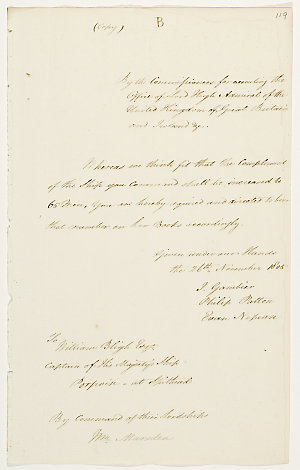 (Copy) B 119
By the Commissioners for executing the
Office of Lord High Admiral of the
United Kingdom of Great Britain
and Ireland &c.
Whereas we think fit that the Complement
of the Ship you Command shall be increased to
65 Men, You are hereby required and directed to bear
that number on her Books accordingly.
Given under our Hands
the 26th November 1805
J. Gambier
Philip Patton
Evan Nepean
To
William Bligh Esqr
Captain of His Majestys Ship
Porpoise - at Spithead
By Command of their Lordships
Wm Marsden